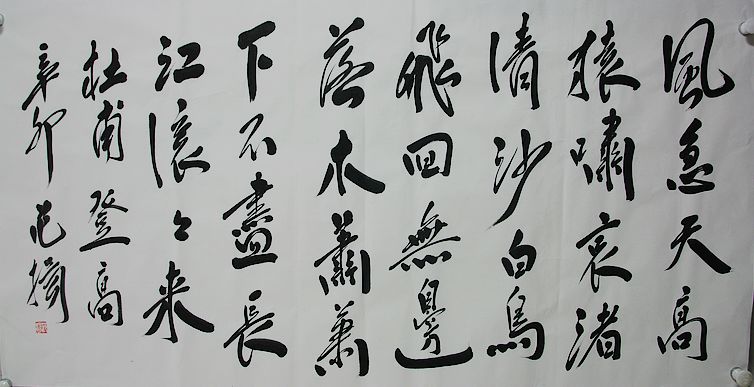 風急天高
猿嘯哀渚
清沙白鳥
飛回無邊
落木蕭蕭
下不盡長
江滾々来
杜甫登高
辛卯